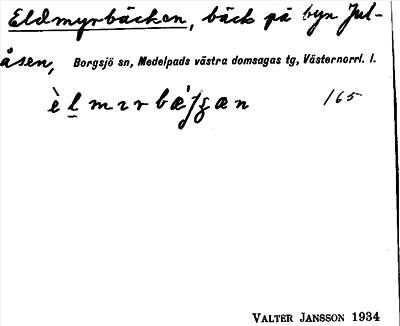 Eldmyrbäcken, bäck på byn Jul-
åsen, Borgsjö sn, Medelpads västra domsagas tg, Västernorrl. l.
165
VALTER JANSSON 1934